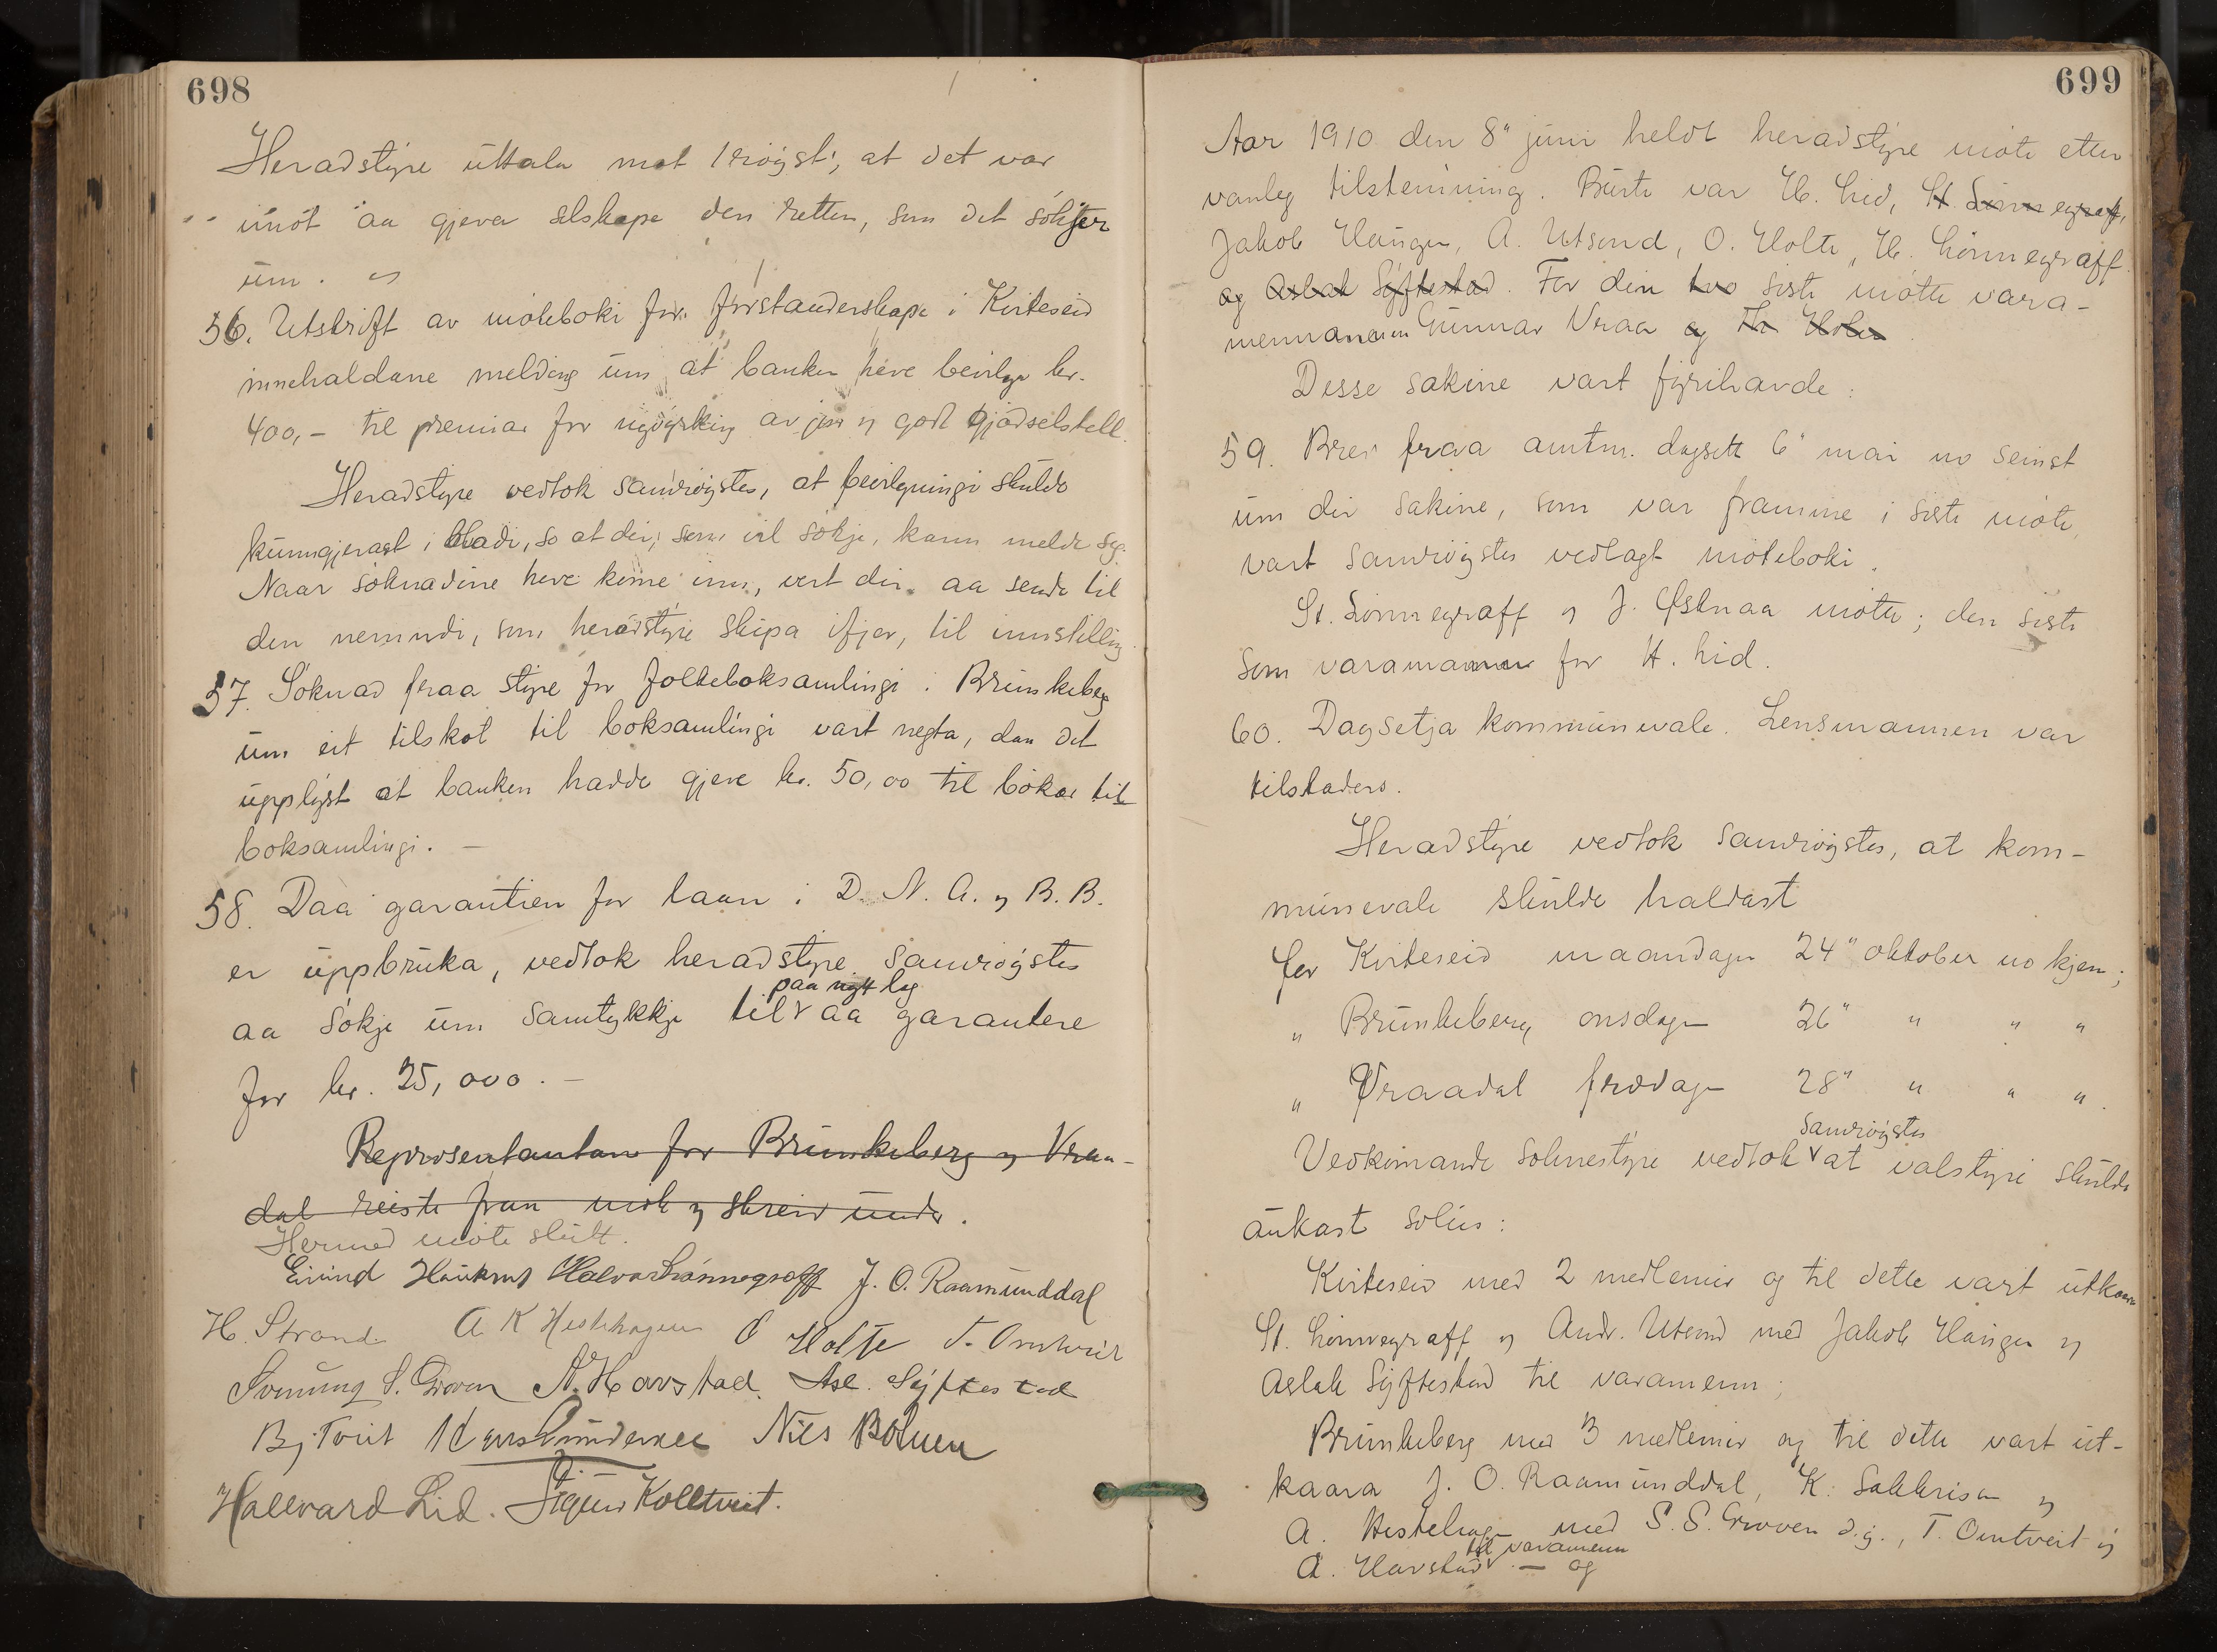 698
Heradstyre úttala mot 1 røyst, at det var
imot aa gjeva selskape den retten, som det søkjer
úm.
56. Utskrift av møteboki for forstanderskape i Kviteseid
innehaldane melding úm at banken heve bevilga kr.
400,- til premiar for nydyrking av jor og god gjødselstell.
Heradstyre vedtok samrøystes, at beivlgningi skúlde
kúnngjerast i bladi, so at dei, som vil søkje, kann melde seg.
Naar søknadine heve kome inn, vert dei aa sende til
den nemndi, som heradstyre skipa ifjor, til innstilling.
57. Søknad fraa styre for folkeboksamlingi i Brúnkeberg
úm eit tilskot til boksamlingi vart negta, daa det
úpplyst at banken hadde gjeve kr. 50,00 til bøkar til
boksamlingi. –
58. Daa garantien for laan i D. N. A. og B. B.
er úppbrúka, vedtok heradstyre samrøystes
paa nytt lag
aa søkje úm samtykkje til aa garantere
for kr. 25,000. –
Representantane for Brúnkeberg og Vraa-
dal reiste fraa møte og skreiv únder.
Hermed møte slútt.
Eivind Haúknes Halvor Lønnegraff J. O. Raamúnddal
H. Strand A K Hestehagen O Holte T. Omtveit
Svenúng S. Groven A. Havstad. Asl. Syftestad
Bj. Tveit Nils Bolúen
Hallvard Lid. Sigurd Kolltveit.
699
Aar 1910 den 8" júni heldt heradstyre møte etter
vanleg tilstemning. Búrte var H. Lid, St. Lønnegraff,
Jakob Haúgen, A. Utsund, O. Holte, H. Lønnegraff
og Aslak Syftestad. For dein tvo siste møtte vara-
mennane Gúnnar Vraa og
Desse sakine vart fyrihavde:
59. Brev fraa amtm. dagsett 6" mai no seinst
úm dei sakine, som var framme i siste møte,
vart samrøystes vedlagt møteboki.
St. Lønnegraff og J. Østnaa møtte; den siste
som varamann for H. Lid.
60. Dagsetja kommúnevale. Lensmannen var
tilstades.
Heradstyre vedtok samrøystes, at kom-
múnevale skúlde haldast
for Kviteseid maandagen 24" oktober no kjem;
" Brúnkeberg onsdagen 26" " " "
" Vraadal fredagen 28" " " ".
samrøystes
Vedkomande soknestyre vedtok at valstyri skúlde
aúkast soleis:
Kviteseid med 2 medlemer og til dette vart útkaara
St. Lønnegraff og Andr. Utsund med Jakob Haúgen og
Aslak Syftestad til varamenn;
Brúnkeberg med 3 medlemer og til dette vart út-
kaara J. O. Raamúnddal, K. og
A. Hestehagen med S. S. Groven d.y., T. Omtveit og
til varamenn
A. Havstad – og